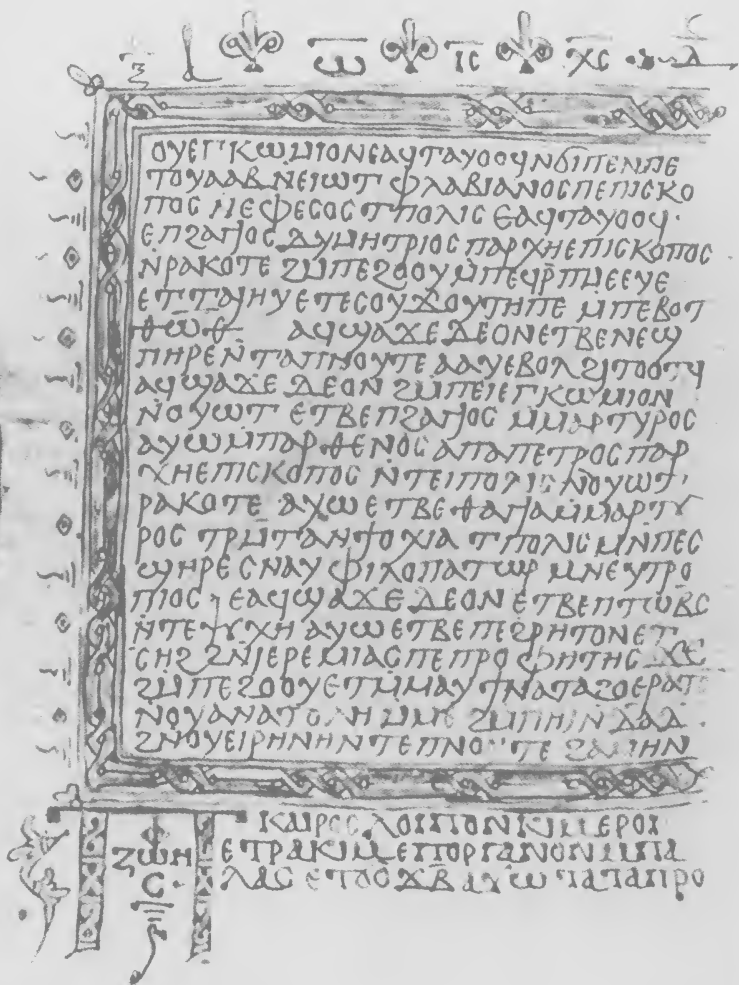 ⲱ̅ ⲓ̅ⲥ̅ ⲭ̅ⲥ̅
ⲟⲩⲉⲅⲕⲱⲙⲓⲟⲛⲉⲁϥⲧⲁⲩⲟⲟϥⲛϭⲓⲡⲉⲛⲡⲉ
ⲧⲟⲩⲁⲁⲃⲛⲉⲓⲱⲧ ⲫⲗⲁⲃⲓⲁⲛⲟⲥⲡⲉⲡⲓⲥⲕⲟ
ⲡⲟⲥ ⲛⲉⲫⲉⲥⲟⲥ ⲧⲡⲟⲗⲓⲥ ⲉⲁϥⲧⲁⲩⲟⲟϥ·
ⲉⲡϩⲁⲅⲓⲟⲥ ⲇⲩⲙⲏⲧⲣⲓⲟⲥ ⲡⲁⲣⲭⲏⲉⲡⲓⲥⲕⲟⲡⲟⲥ
ⲛ̅ⲣⲁⲕⲟⲧⲉ ϩⲙⲡⲉϩⲟⲟⲩ ⲙ̅ⲡⲉϥⲣ̅ⲡⲙⲉⲉⲩⲉ
ⲉⲧⲧⲁⲓⲏⲩ ⲉⲧⲉⲥⲟⲩϫⲟⲩⲧⲏⲡⲉ ⲙ̅ⲡⲉⲃⲟⲧ
ⲑⲱⲑ ⲁϥϣⲁϫⲉ ⲇⲉⲟⲛⲉⲧⲃⲉⲛⲉϣ
ⲡⲏⲣⲉ ⲛ̅ⲧⲁⲡⲛⲟⲩⲧⲉ ⲁⲁⲩⲉⲃⲟⲗϩⲓⲧⲟⲟⲧϥ
ⲁϥϣⲁϫⲉ ⲇⲉⲟⲛ ϩⲙⲡⲉⲓⲉⲅⲕⲱⲙⲓⲟⲛ
ⲛ̅ⲟⲩⲱⲧ ⲉⲧⲃⲉⲡϩⲁⲅⲓⲟⲥ ⲙ̅ⲙⲁⲣⲧⲩⲣⲟⲥ
ⲁⲩⲱⲙ̅ⲡⲁⲣⲑⲉⲛⲟⲥ ⲁⲡⲁⲡⲉⲧⲣⲟⲥ ⲡⲁⲣ
ⲭⲏⲉⲡⲓⲥⲕⲟⲡⲟⲥ ⲛ̅ⲧⲉⲓⲡⲟⲗⲓⲥ ⲛⲟⲩⲱⲧ·
ⲣⲁⲕⲟⲧⲉ ⲁⲩⲱ ⲉⲧⲃⲉ ⲑⲁⲅⲓⲁⲙ̅ⲙⲁⲣⲧⲩ
ⲣⲟⲥ ⲧⲣⲙ̅ⲧⲁⲛϯⲟⲭⲓⲁ ⲧⲡⲟⲗⲓⲥ ⲙⲛ̅ⲡⲉⲥ
ϣⲏⲣⲉ ⲥⲛⲁⲩ ⲫⲓⲗⲟⲡⲁⲧⲱⲣ ⲙⲛⲉⲩⲧⲣⲟ
ⲡⲓⲟⲥ· ⲉⲁϥϣⲁϫⲉ ⲇⲉⲟⲛ ⲉⲧⲃⲉⲡⲧⲱⲃⲥ
ⲛ̅ⲧⲉⲯⲩⲭⲏ ⲁⲩⲱ ⲉⲧⲃⲉ ⲡⲉϩⲣⲏⲧⲟⲛⲉⲧ
ⲥⲏϩ ϩⲛ̅ⲓⲉⲣⲉⲙⲓⲁⲥ ⲡⲉⲡⲣⲟⲫⲏⲧⲏⲥ ϫⲉ
ϩⲙⲡⲉϩⲟⲟⲩ ⲉⲧⲙ̅ⲙⲁⲩ ϯⲛⲁⲧⲁϩⲟⲉⲣⲁⲧ
ⲛⲟⲩⲁⲛⲁⲧⲟⲗⲏ ⲙ̅ⲙⲉ ϩⲙⲡⲏⲓⲛ ⲇⲁⲇ·
ϩⲛⲟⲩⲉⲓⲣⲏⲛⲏ ⲛⲧⲉ ⲡⲛⲟⲩⲧⲉ ϩⲁⲙⲏⲛ
ⲕⲁⲓⲣⲟⲥ ⲗⲟⲓⲡⲟⲛ ⲕⲓⲙ ⲉⲣⲟⲓ
ⲉⲧⲣⲁⲕⲓⲙ ⲉⲡⲟⲣⲅⲁⲛⲟⲛ ⲙ̅ⲡⲁ
ⲗⲁⲥ ⲉⲧϭⲟϫⲃ̅ ⲁⲩⲱ ⲧⲁⲧⲁⲡⲣⲟ
ⲍⲱⲏ
ⲥ